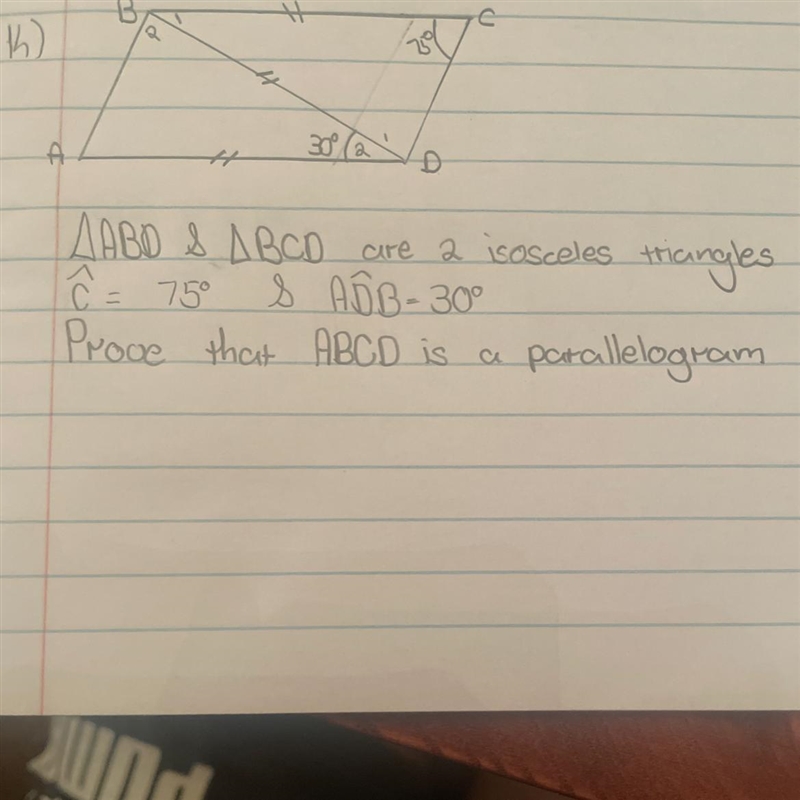 h)
B 1 C
2 75°
30° 2 1
A D
ΔABD & ΔBCD are 2 isosceles triangles
Ĉ = 75° & AD̂B = 30°
Prove that ABCD is a parallelogram